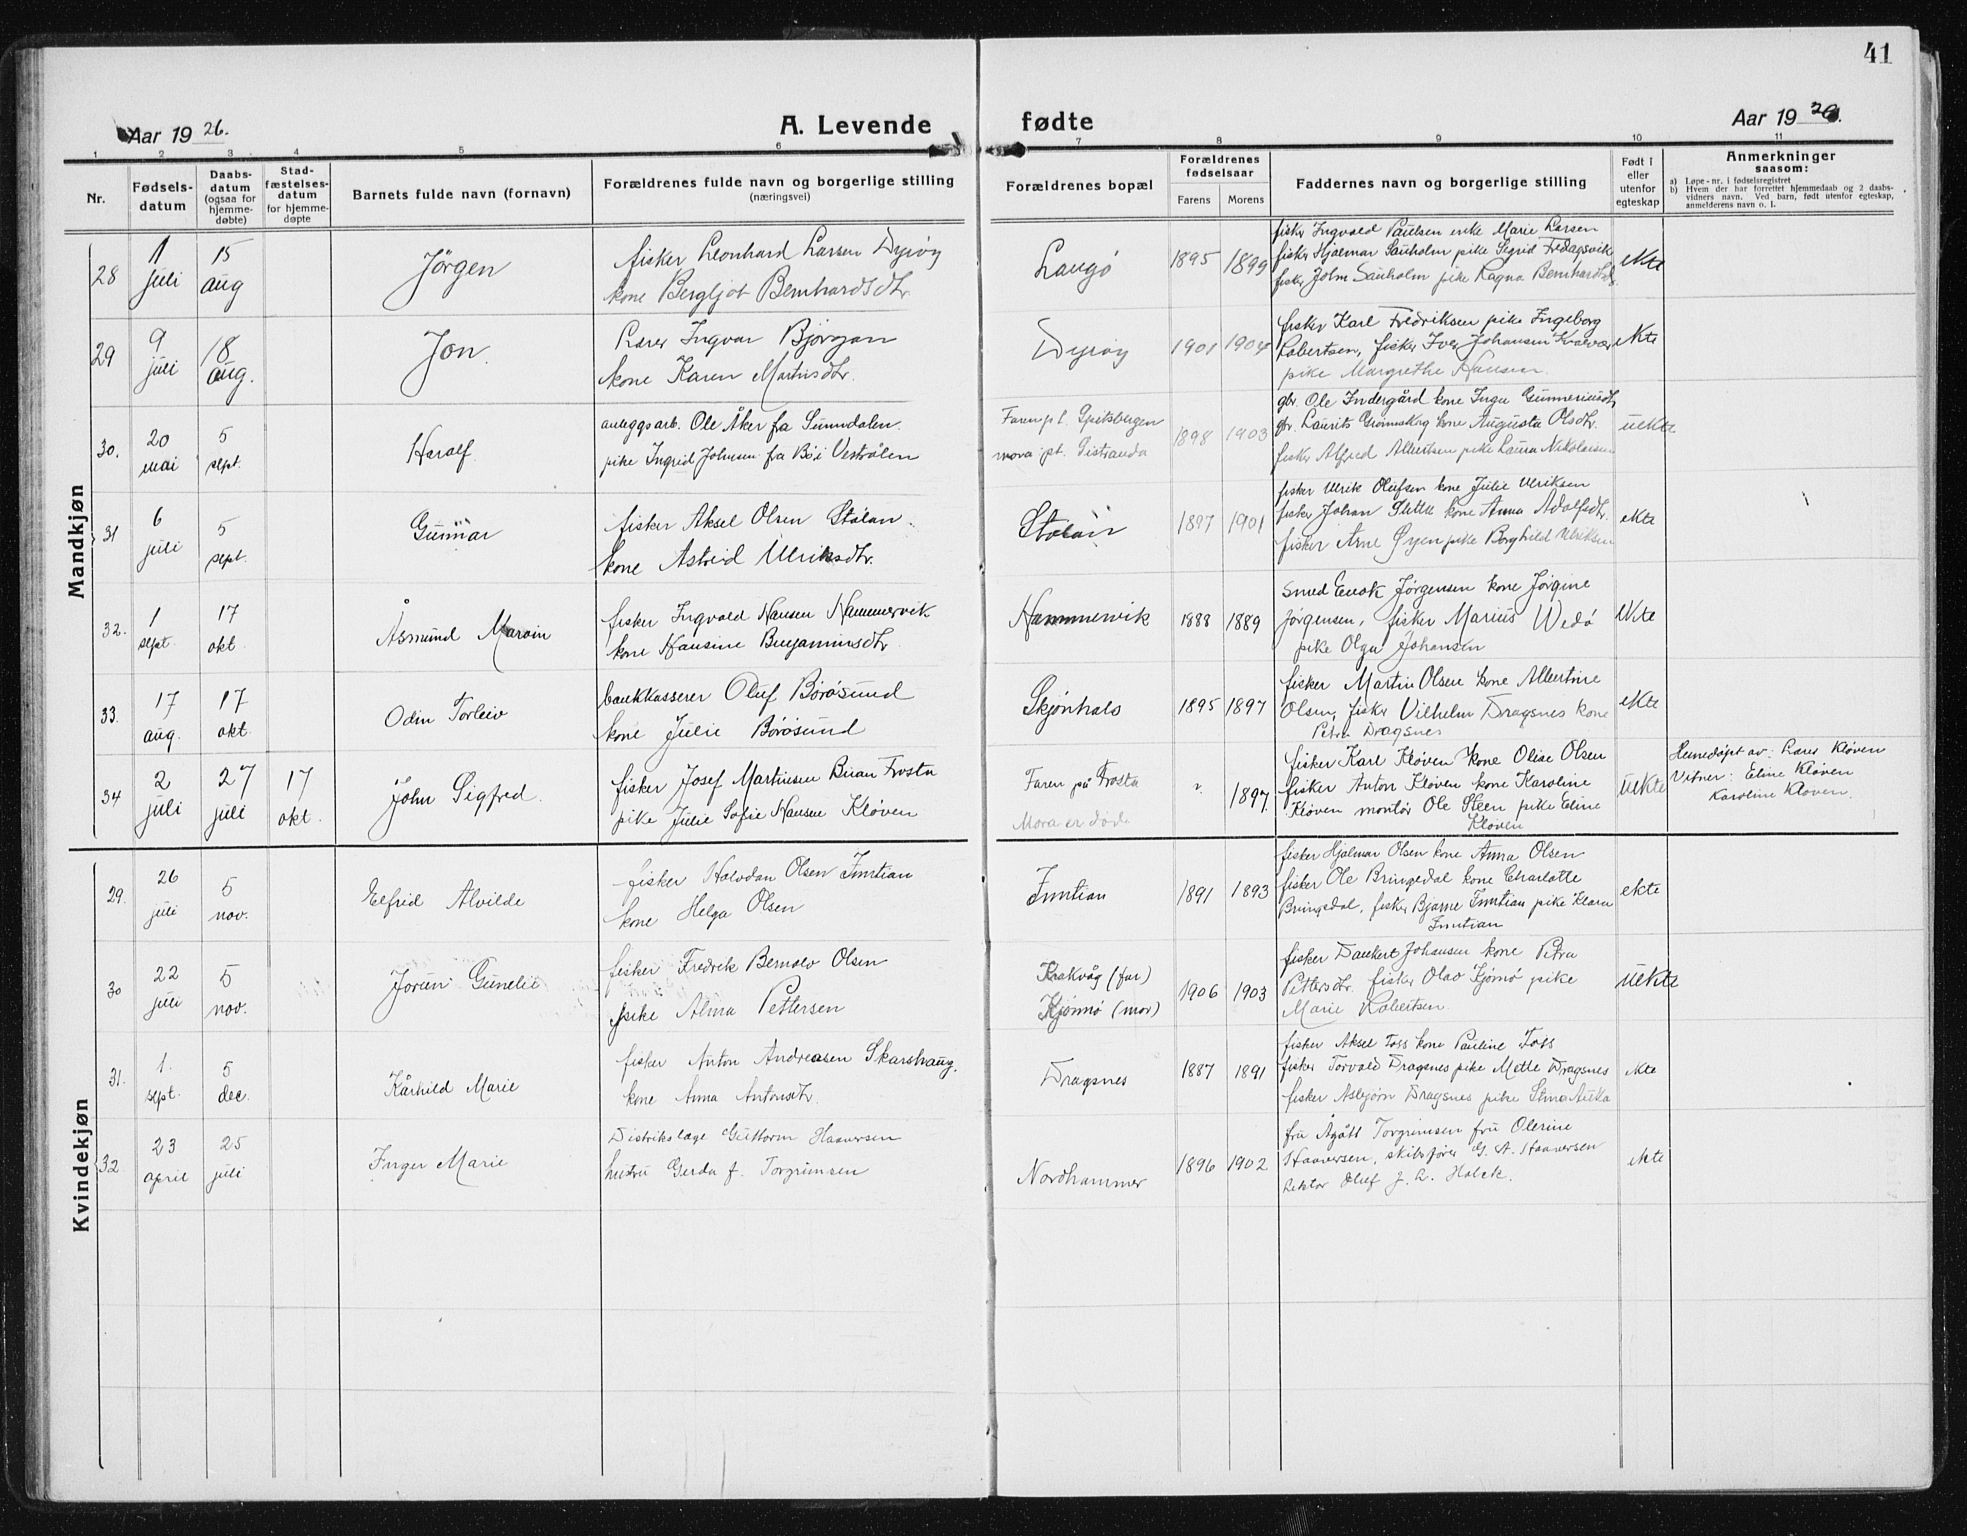 41
Aar 1926.
A. Levende fødte
Aar 1926.
1 2 3 4 5 6 7 8 9 10 11
Nr.
Fødsels-
datum
Daabs-
datum
(ogsaa for
hjemme-
døbte)
Stad-
fæstelses-
datum
for hjemme-
døpte
Barnets fulde navn (fornavn)
Forældrenes fulde navn og borgerlige stilling
(næringsvei)
Forældrenes bopæl
Forældrenes
fødselsaar
Farens Morens
Faddernes navn og borgerlige stilling
Født i
eller
utenfor
egteskap
Anmerkninger
saasom:
a) Løpe-nr. i fødselsregistret
b) Hvem der har forrettet hjemmedaab og 2 daabs-
vidners navn. Ved barn, født utenfor egteskap,
anmelderens navn o. l.
Mandkjøn
28 1 juli 15 aug Jörgen
fisker Leonhard Larsen Dyrøy
kone Bergljot Bernhardsdtr.
Langø 1895 1899
fisker Ingvald Paulsen enke Marie Larsen
fisker Hjalmar Sauholm pike Sigrid Fredagsvik
fisker John Sauholm pike Ragna Bernhardsd.
ekte
29 9 juli 18 aug. Jon.
Lærer Ingvar Bjørgan
kone Karen Martinsdtr.
Dyrøy 1901 1904
fisker Karl Fredriksen pike Ingeborg
Robertsen, fisker Iver Johansen Kvalvær
pike Margrethe Hansen.
ekte
30. 20 mai 5 sept. Haralf
anleggsarb. Ole Åker fra Sunndalen.
pike Ingrid Johnsen fra Bø i Vestrålen
Faren p.t. Spitsbergen
mora pt. Sistranda
1898 1903
gbr. Ole Indergård kone Inga Gunneriusdtr.
gbr. Laurits Grønnskag kone Augusta Olsdtr.
fisker Alfred Albertsen pike Laura Nikolaisen
uekte
31 6 juli 5 sept. Gunnar
fisker Aksel Olsen Stølan
kone Astrid Ulriksdtr.
Stølan 1897 1901
fisker Ulrik Olufsen kone Julie Ulriksen
fisker Johan Slette kone Anna Adolfsdtr.
fisker Arne Øyen pike Borghild Ulriksen
ekte
32. 1 sept. 17 okt. Åsmund Marvin
fisker Ingvald Hansen Hammervik
kone Hansine Benjaminsdtr.
Hammervik 1888 1889
Smed Enok Jørgensen kone Jørgine
Jørgensen, fisker Marius Wedø
pike Olga Johansen
ekte
33. 17 aug. 17 okt. Odin Torleiv
bankkasserer Oluf Børøsund
kone Julie Børøsund
Skjønhals 1895 1897
fisker Martin Olsen kone Albertine
Olsen, fisker Vilhelm Dragsnes kone
Petra Dragsnes
ekte
34 2 juli 27 juli 17 okt. John Sigfred.
fisker Josef Martinsen Frosta
pike Julie Sofie Hansen Kløven
Faren på Frosta
Mora er døde
? 1897.
fisker Karl Kløven kone Olise Olsen
fisker Anton Kløven kone Karoline
Kløven montør Ole Steen pike Eline
Kløven
uekte
Hemedøpt av: Lærer Kløven
Vitner: Eline Kløven
Karoline Kløven.
Kvindekjøn
29. 26 juli 5 nov. Elfrid Alvilde
fisker Halvdan Olsen Inntian
kone Helga Olsen
Inntian 1891 1893
fisker Hjalmar Olsen kone Anna Olsen
fisker Ole Bringedal kone Charlotte
Bringedal, fisker Bjarne Inntian pike Klara
Inntian
ekte
30 22 juli 5 nov. Jorun Gunelie
fisker Fredrik Bernolv Olsen
pike Alma Pettersen
Krakvåg (far)
Kjønnø (mor)
1906 1903
fisker Dankert Johansen kone Petra
Pettersdtr. fisker Olav Kjønnø pike
Marie Robertsen.
uekte
31. 1. sept. 5 dec. Kårhild Marie
fisker Anton Andreasen Skarshaug.
kone Anna Antonsdtr.
Dragsnes 1887 1891
fisker Aksel Foss kone Pauline Foss
fisker Torvald Dragsnes pike Mette Dragsnes
fisker Asbjørn Dragsnes pike Stina Auka
ekte
32 23 april 25 juli Inger Marie
Distrikslæge Guttorm Haaversen
hustru Gerda f. Torgrimsen
Nordhammer 1896 1902
fru Ågått Torgrimsen fru Olerine
Haaversen, skibsfører G. A. Haaversen
Lektor Oluf J. L. Holck.
ekte